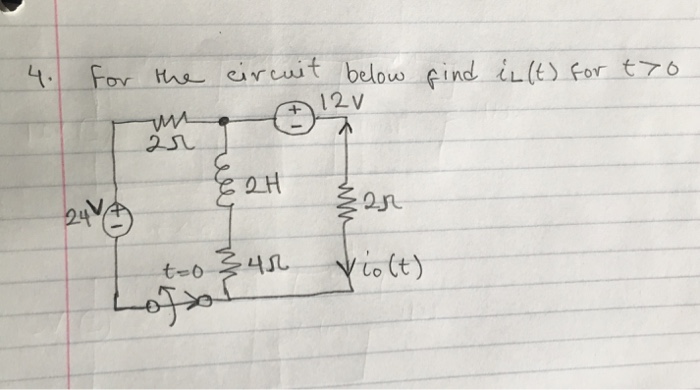 4. For the circuit below find iL(t) for t>0
12V
2Ω
2H
24V
+
-
+
-
2Ω
t=0
4Ω
io(t)